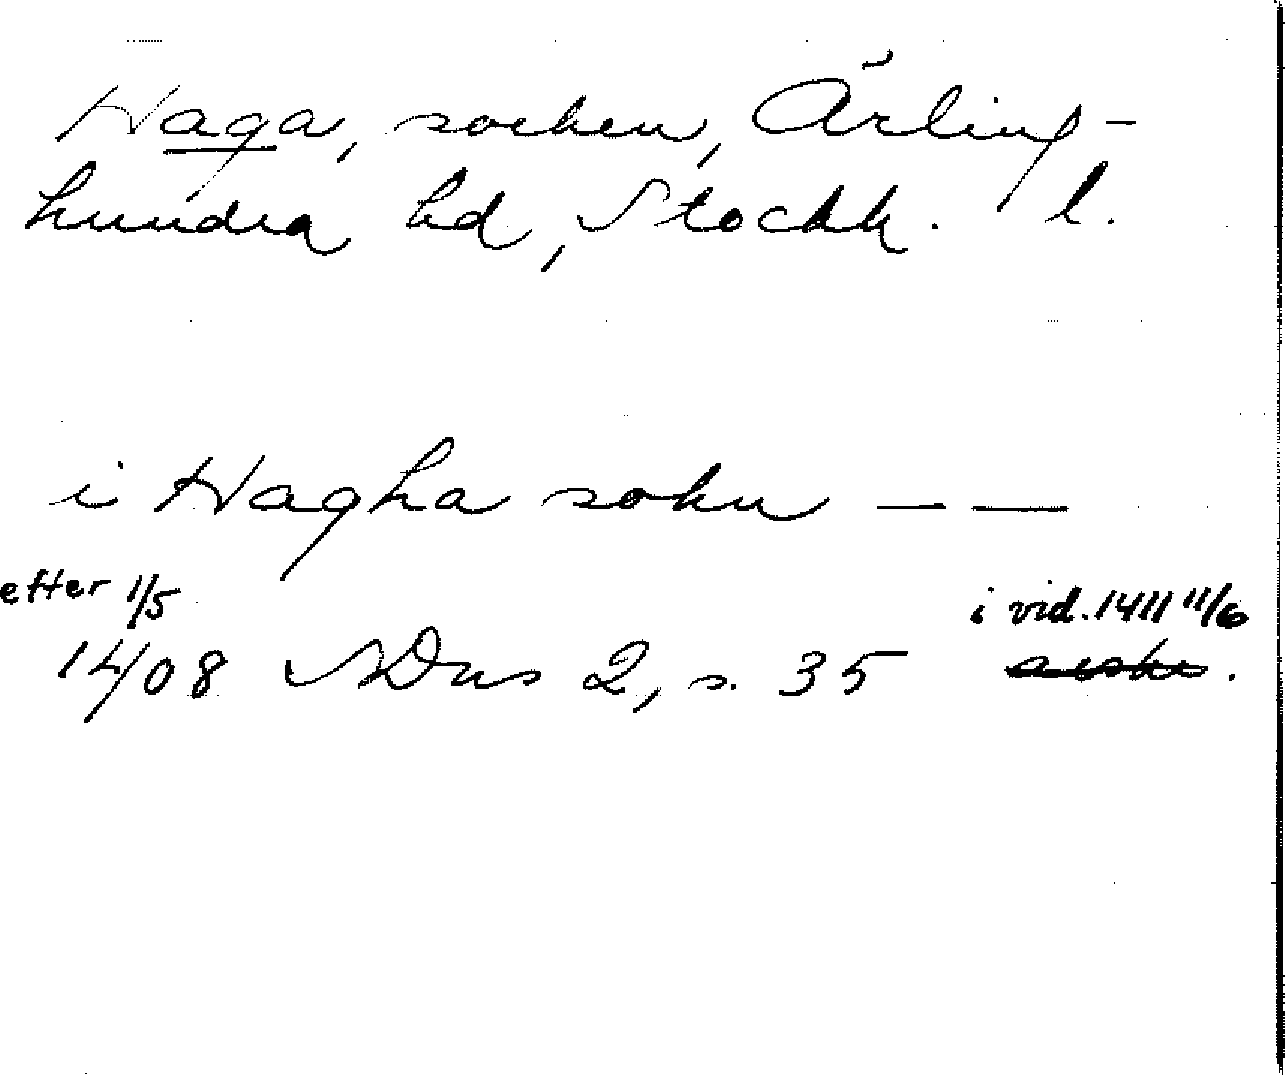 Haga, socken, Ärling-
hundra hd, Stockh. l.
i Hagha sokn — —
efter 1/5 i vid. 1411 11/6
1408 SDns 2, s. 35